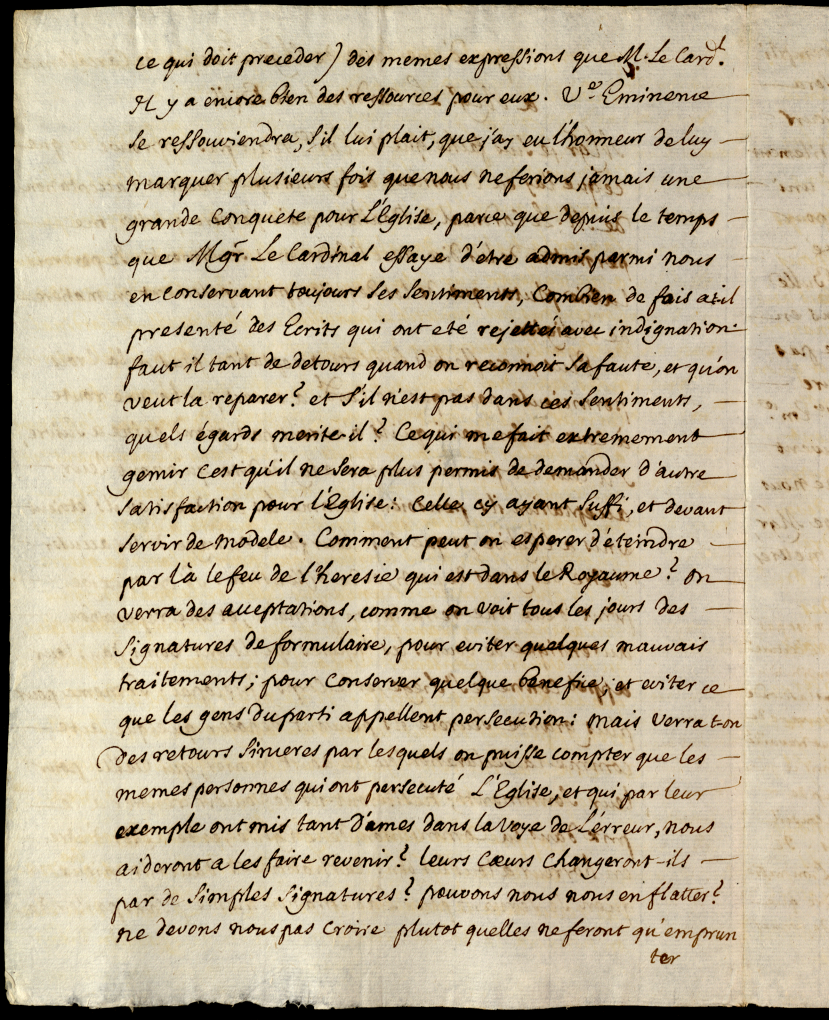 ce qui doit preceder) des memes expressions que M. Le Card.l
Il y a encore bien des ressources pour eux. V.e Eminence
se ressouviendra, s'il lui plait, que j'ay eu l'honneur de luy
marquer plusieurs fois que nous ne ferions jamais une
grande conquete pour L'Eglise, parce que depuis le temps
que Mgr. Le Cardinal essaye d'étre admis parmi nous
en conservant toujours ses sentiments, Combien de fois a t il
presenté des Ecrits qui ont eté rejettés avec indignation.
faut il tant de detours quand on reconnoit sa faute, et qu'on
veut la reparer? et s'il n'est pas dans ces sentiments,
quels égards merite-il? Ce qui me fait extremement
gemir c'est qu'il ne sera plus permis de demander d'autre
satisfaction pour l'Eglise: Celle cy ayant suffi, et devant
servir de modele. Comment peut on esperer d'éteindre
par là le feu de l'heresie qui est dans le Royaume? On
verra des acceptations, comme on voit tous les jours des
signatures de formulaire, pour eviter quelques mauvais
traitements; pour conserver quelque benefice, et eviter ce
que les gens du parti appellent persecution: mais verra t-on
des retours sinceres par lesquels on puisse compter que les
memes personnes qui ont persecuté L'Eglise, et qui par leur
exemple ont mis tant d'ames dans la voye de L'érreur, nous
aideront a les faire revenir? leurs cœurs changeront-ils
par de simples signatures? pouvons nous nous en flatter?
ne devons nous pas croire plutot quelles ne feront qu'emprun
ter